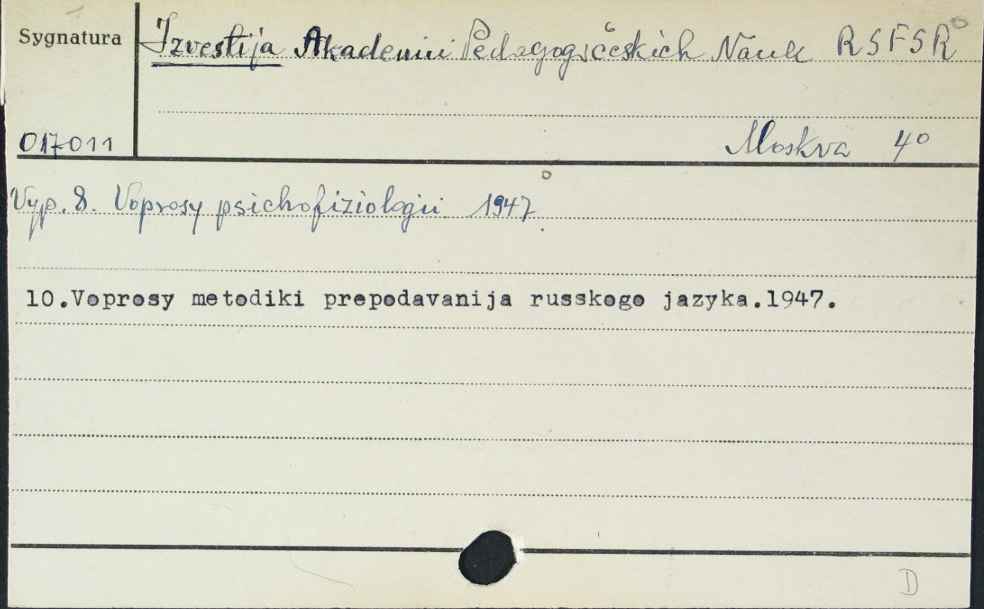 Sygnatura
Izvestija Akademii Pedagogičeskich Nauk RSFSR
017011
Moskva 4°
Vyp. 8. Voprosy psichofiziologii 1947.
10.Voprosy metodiki prepodavanija russkogo jazyka.1947.
D